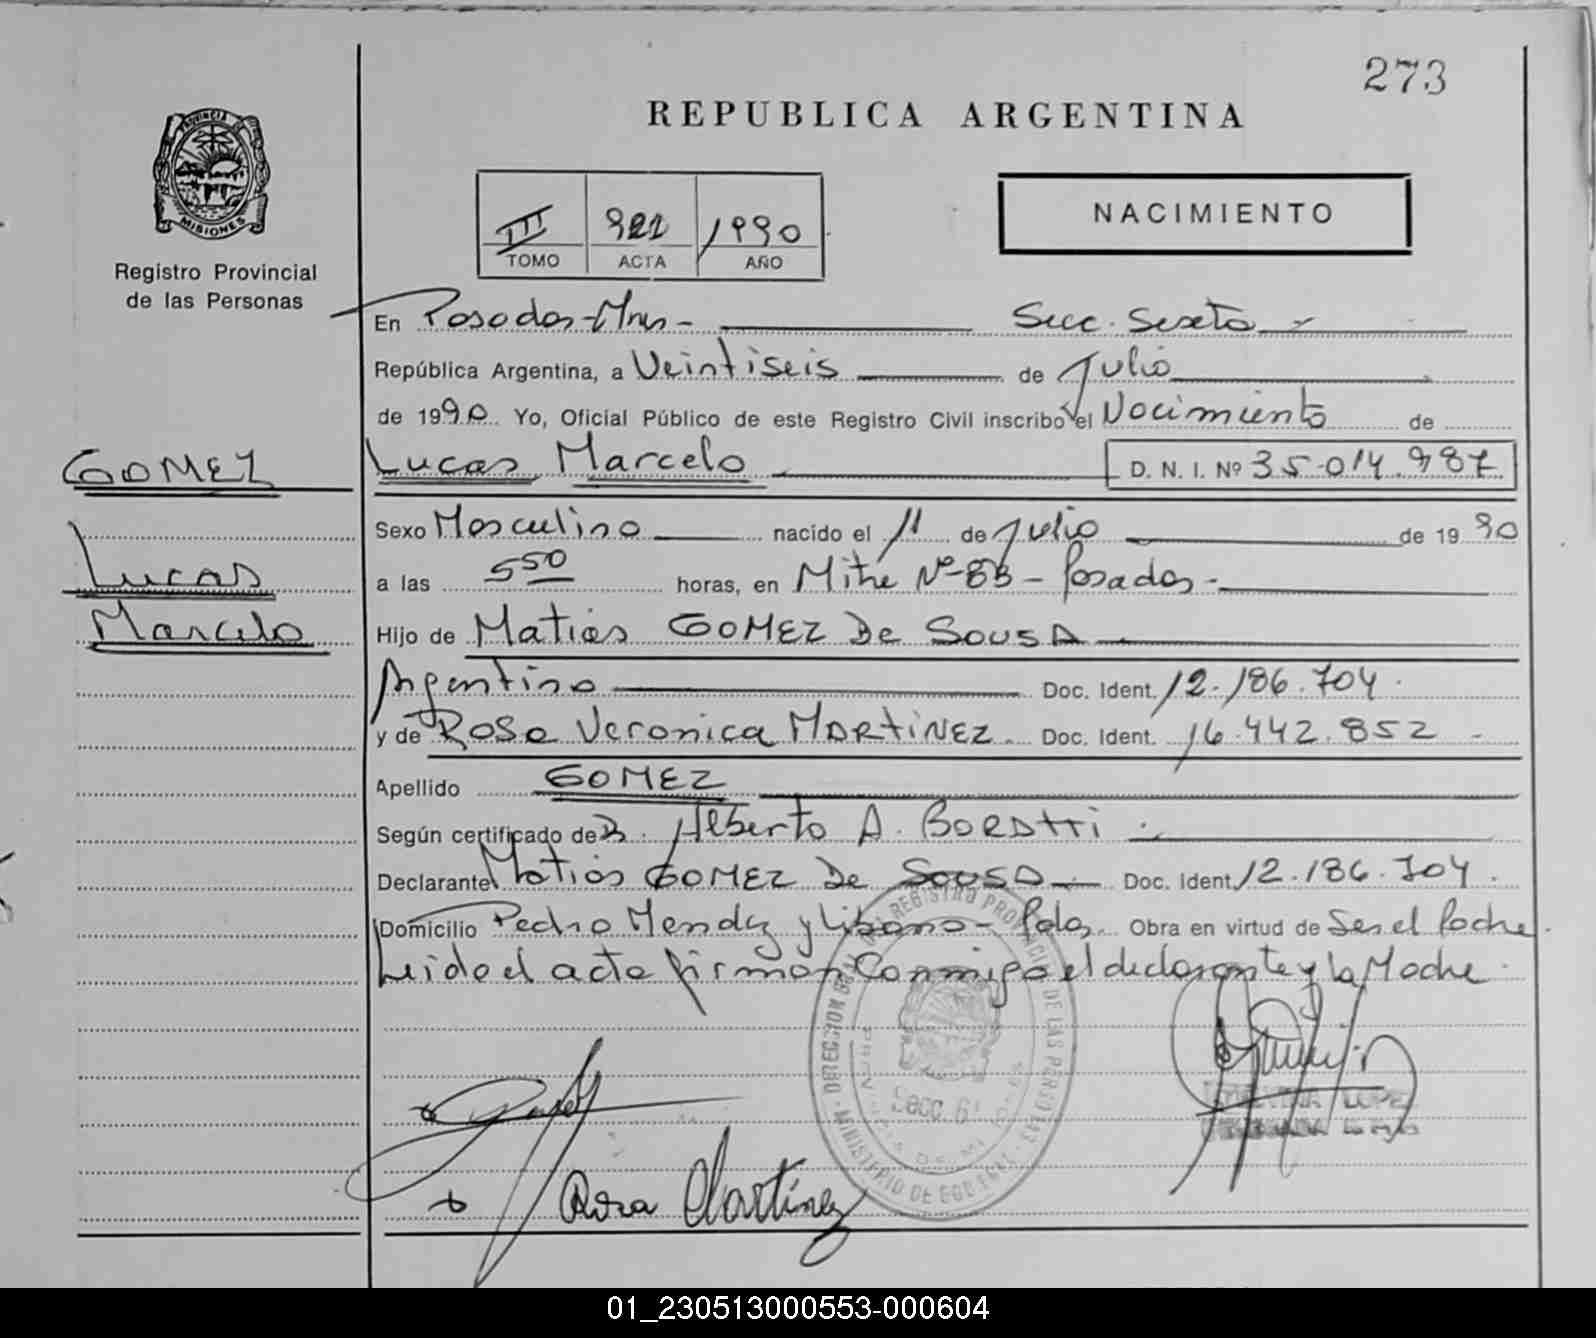 273
REPUBLICA ARGENTINA
PROVINCIA DE
MISIONES
Registro Provincial
de las Personas
III 1990
TOMO ACTA AÑO
NACIMIENTO
En Posadas-Mnes- Secc. Sexta
República Argentina, a Veintiseis de Julio
de 1990 Yo, Oficial Público de este Registro Civil inscribo el Nacimiento de
GOMEZ
Lucas Marcelo D. N. I. Nº 35.014.987
Lucas
Marcelo
Sexo Masculino nacido el 11 de Julio de 1990
a las 550 horas, en Mitre Nº-83- Posadas-
Hijo de Matias GOMEZ De SOUSA
Argentino Doc. Ident. 12.186.704.
y de Rosa Veronica MARTINEZ. Doc. Ident. 16.442.852 -
Apellido GOMEZ
Según certificado de D. Alberto A. BORATTI
Declarante Matias GOMEZ De SOUSA Doc. Ident. 12.186.704.
Domicilio Pedro Mendez y Libano- Pdas. Obra en virtud de Ser el Padre.
Leido el acta firman Conmigo el declarante y la Madre.
Secc. 6ª
Rosa Martinez
01_230513000553-000604